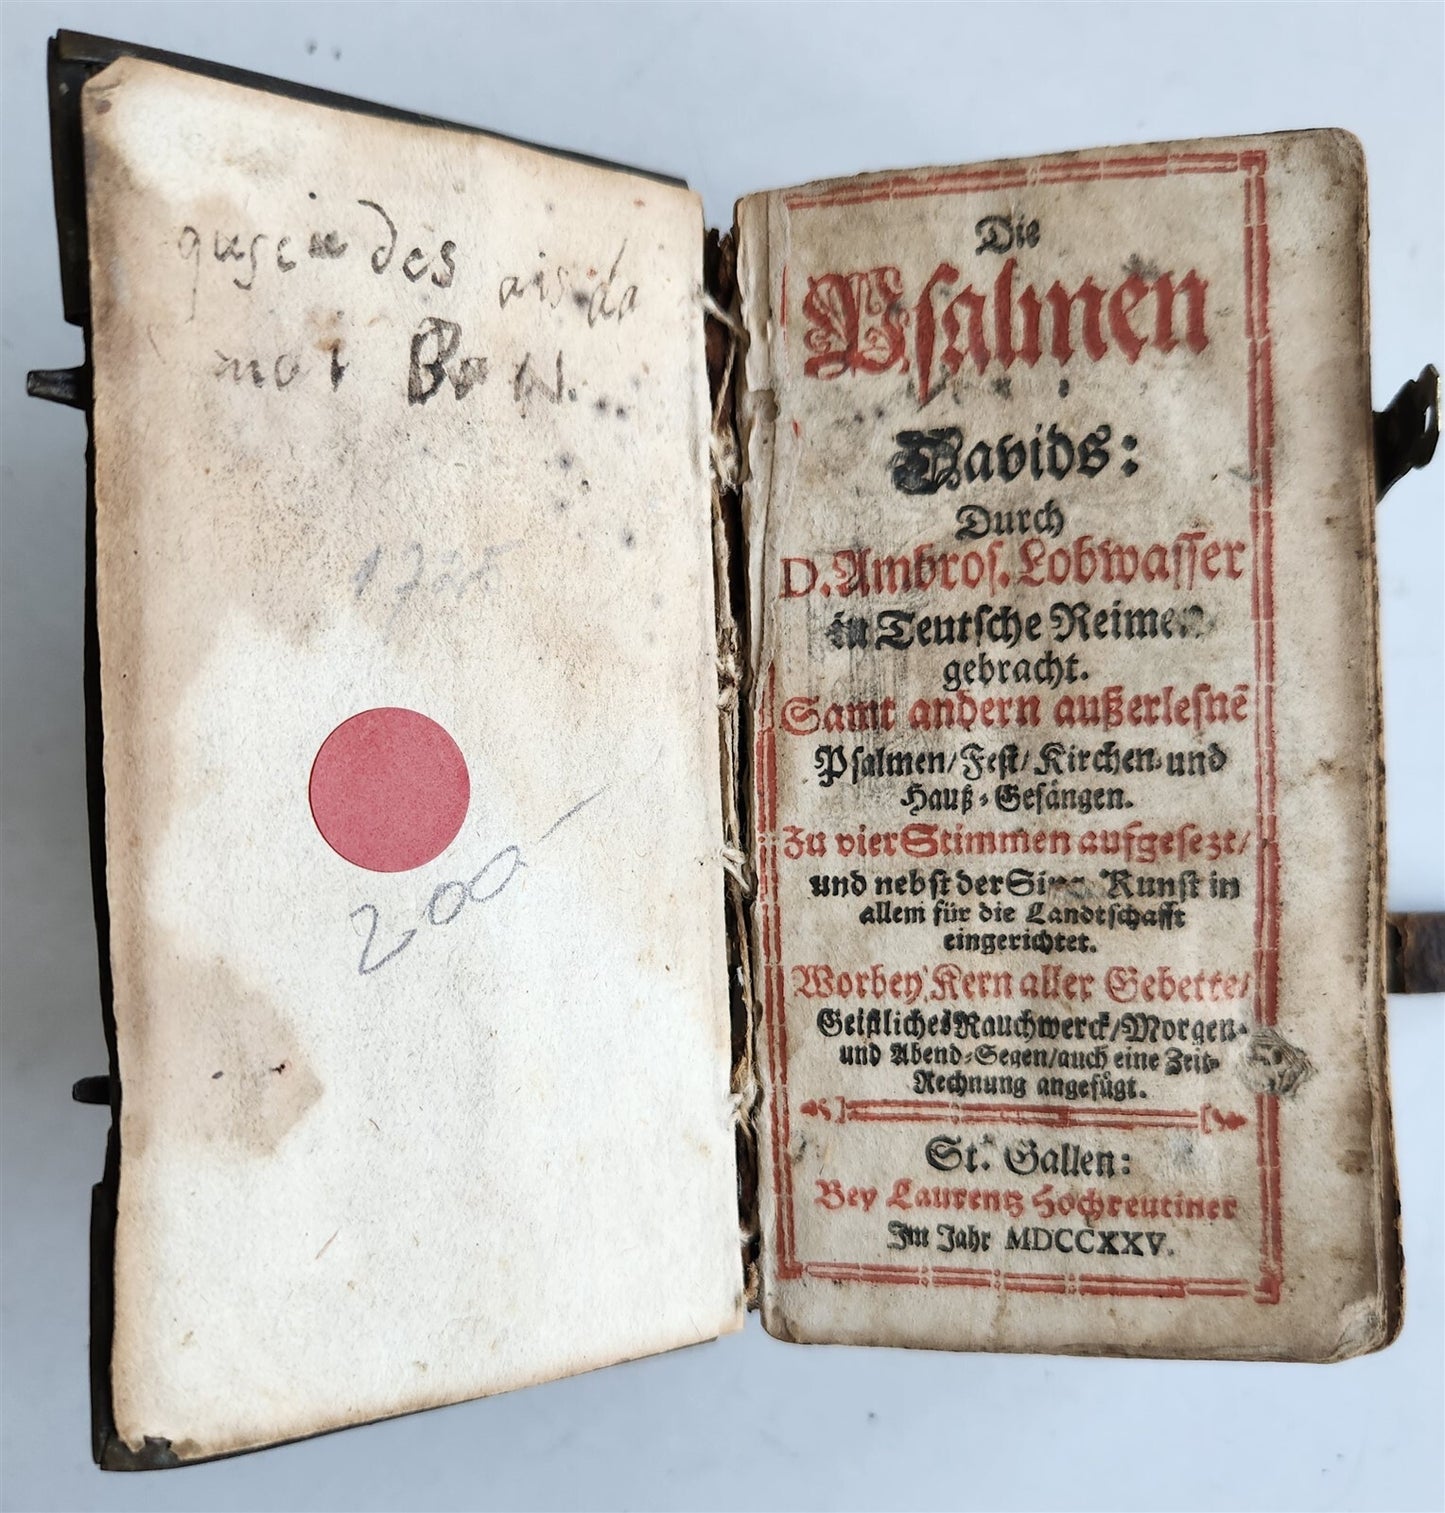 des
1725
200-
Die
Psalmen
Davids:
Durch
D. Ambros. Lobwasser
in Teutsche Reimen
gebracht.
Samt andern außerlesnẽ
Psalmen/Fest/Kirchen- und
Hauß-Gesängen.
Zu vier Stimmen aufgesezt/
und nebst der Sing-Kunst in
allem für die Landtschafft
eingerichtet.
Worbey Kern aller Gebette/
Geistliches Rauchwerck/Morgen-
und Abend-Segen/auch eine Zeit-
Rechnung angefügt.
St. Gallen:
Bey Laurentz Hochreutiner
Im Jahr MDCCXXV.